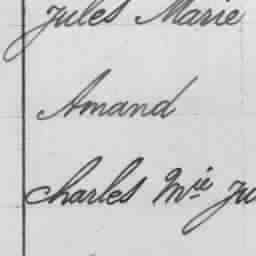 Jules Marie
Amand
Charles Mie Ju